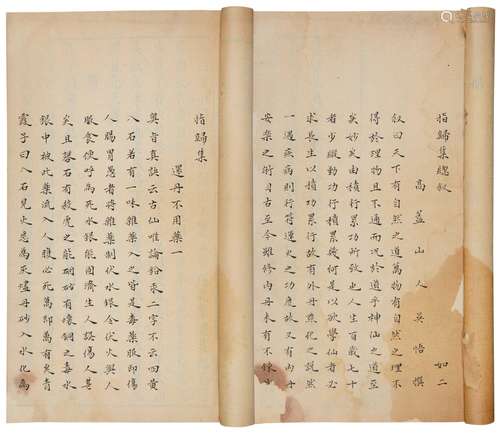 指歸集總叙 如二
高蓋山人吳悞撰
叙曰天下有自然之道萬物有自然之理不
得於理物且不通而况於道乎神仙之道至
矣妙矣由積行累功所致也人生百歲七十
者少縱勤功行積累幾何是以欲學仙者必
求長生以積功累行故有外丹點化之説然
一遇疾病則行符運火之功廢故又有內
安樂之術自古至今雖修內丹未有不鍊
指歸集
還丹不用藥一
奧旨真訣云古仙唯論鉛汞二字不云四黄
八石若有一味雜藥入之皆是毒藥服即傷
人腸胃愚者將雜藥制伏水銀令伏火與人
服食使呼為死水銀能固濟生人誤傷人甚
矣且礜石有殺虎之能硇砂有壞銅之毒水
銀中被此藥流入人腹必死萬却萬有矣青
霞子曰八石見火悉為灰燼丹砂入水化為